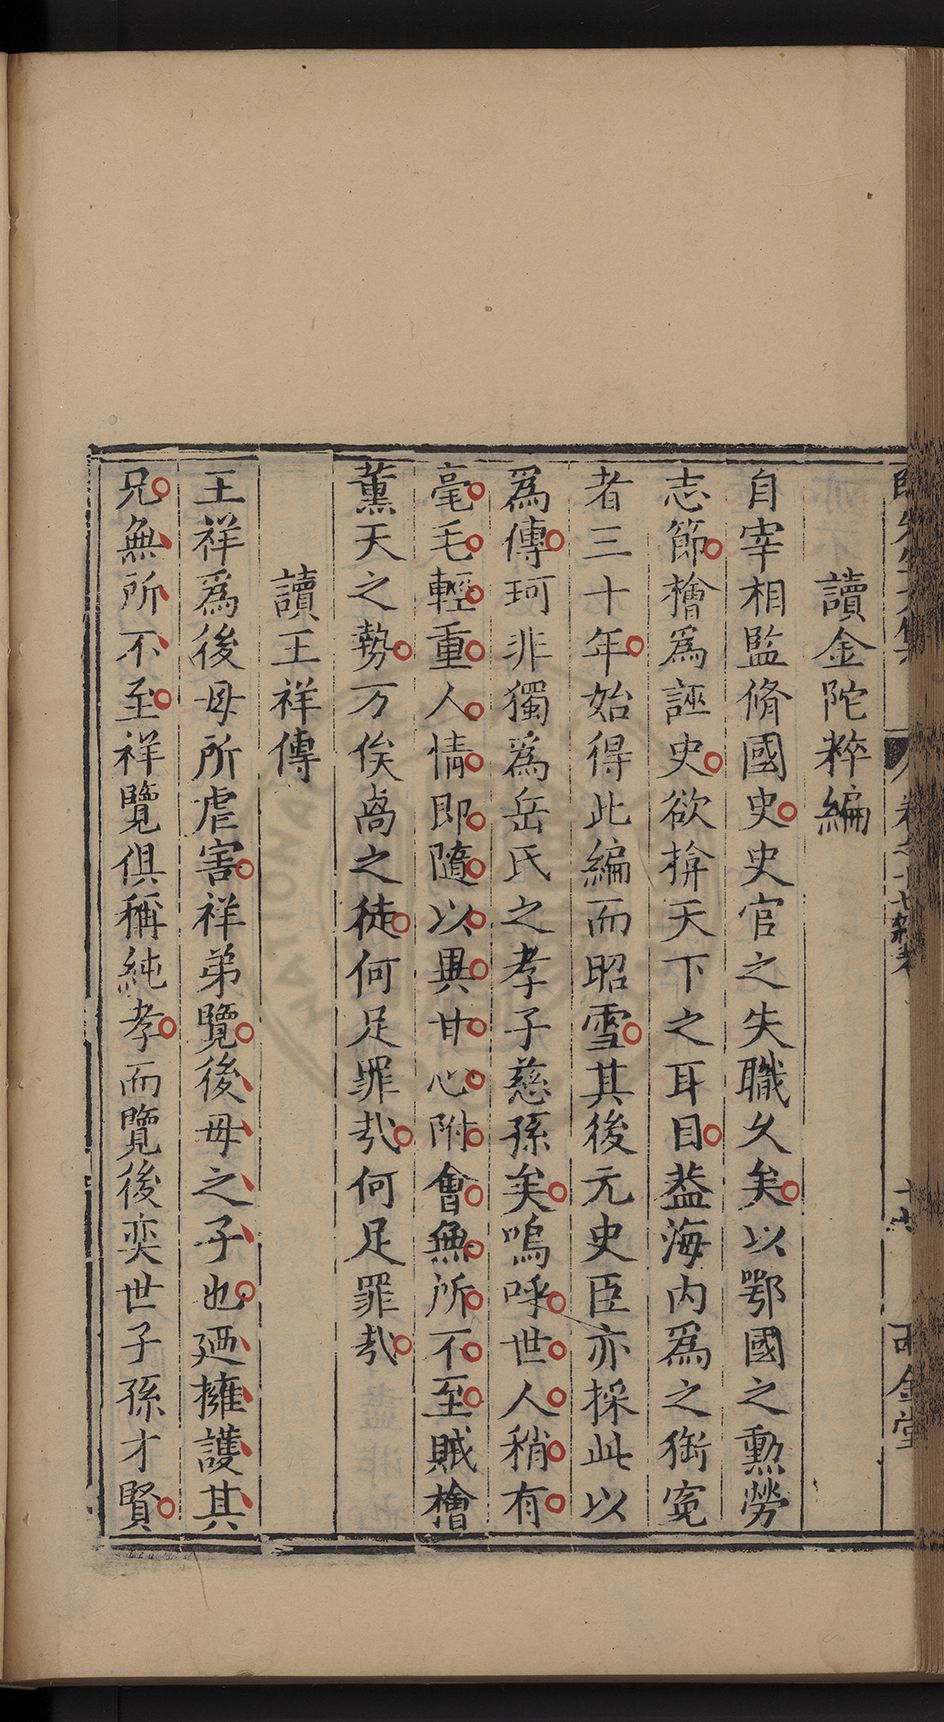 讀金陀粹編
自宰相監脩國史史官之失職久矣以鄂國之勳勞
志節檜爲誣史欲揜天下之耳目葢海内爲之銜寃
者三十年始得此編而昭雪其後元史臣亦採此以
爲傳珂非獨爲岳氏之孝子慈孫矣嗚呼世人稍有
毫毛輕重人情即隨以異甘心附會無所不至賊檜
薰天之勢万俟卨之徒何足罪㢤何足罪㢤
讀王祥傳
王祥爲後母所虐害祥弟覽後母之子也廼擁護其
兄無所不至祥覽俱稱純孝而覽後奕世子孫才賢